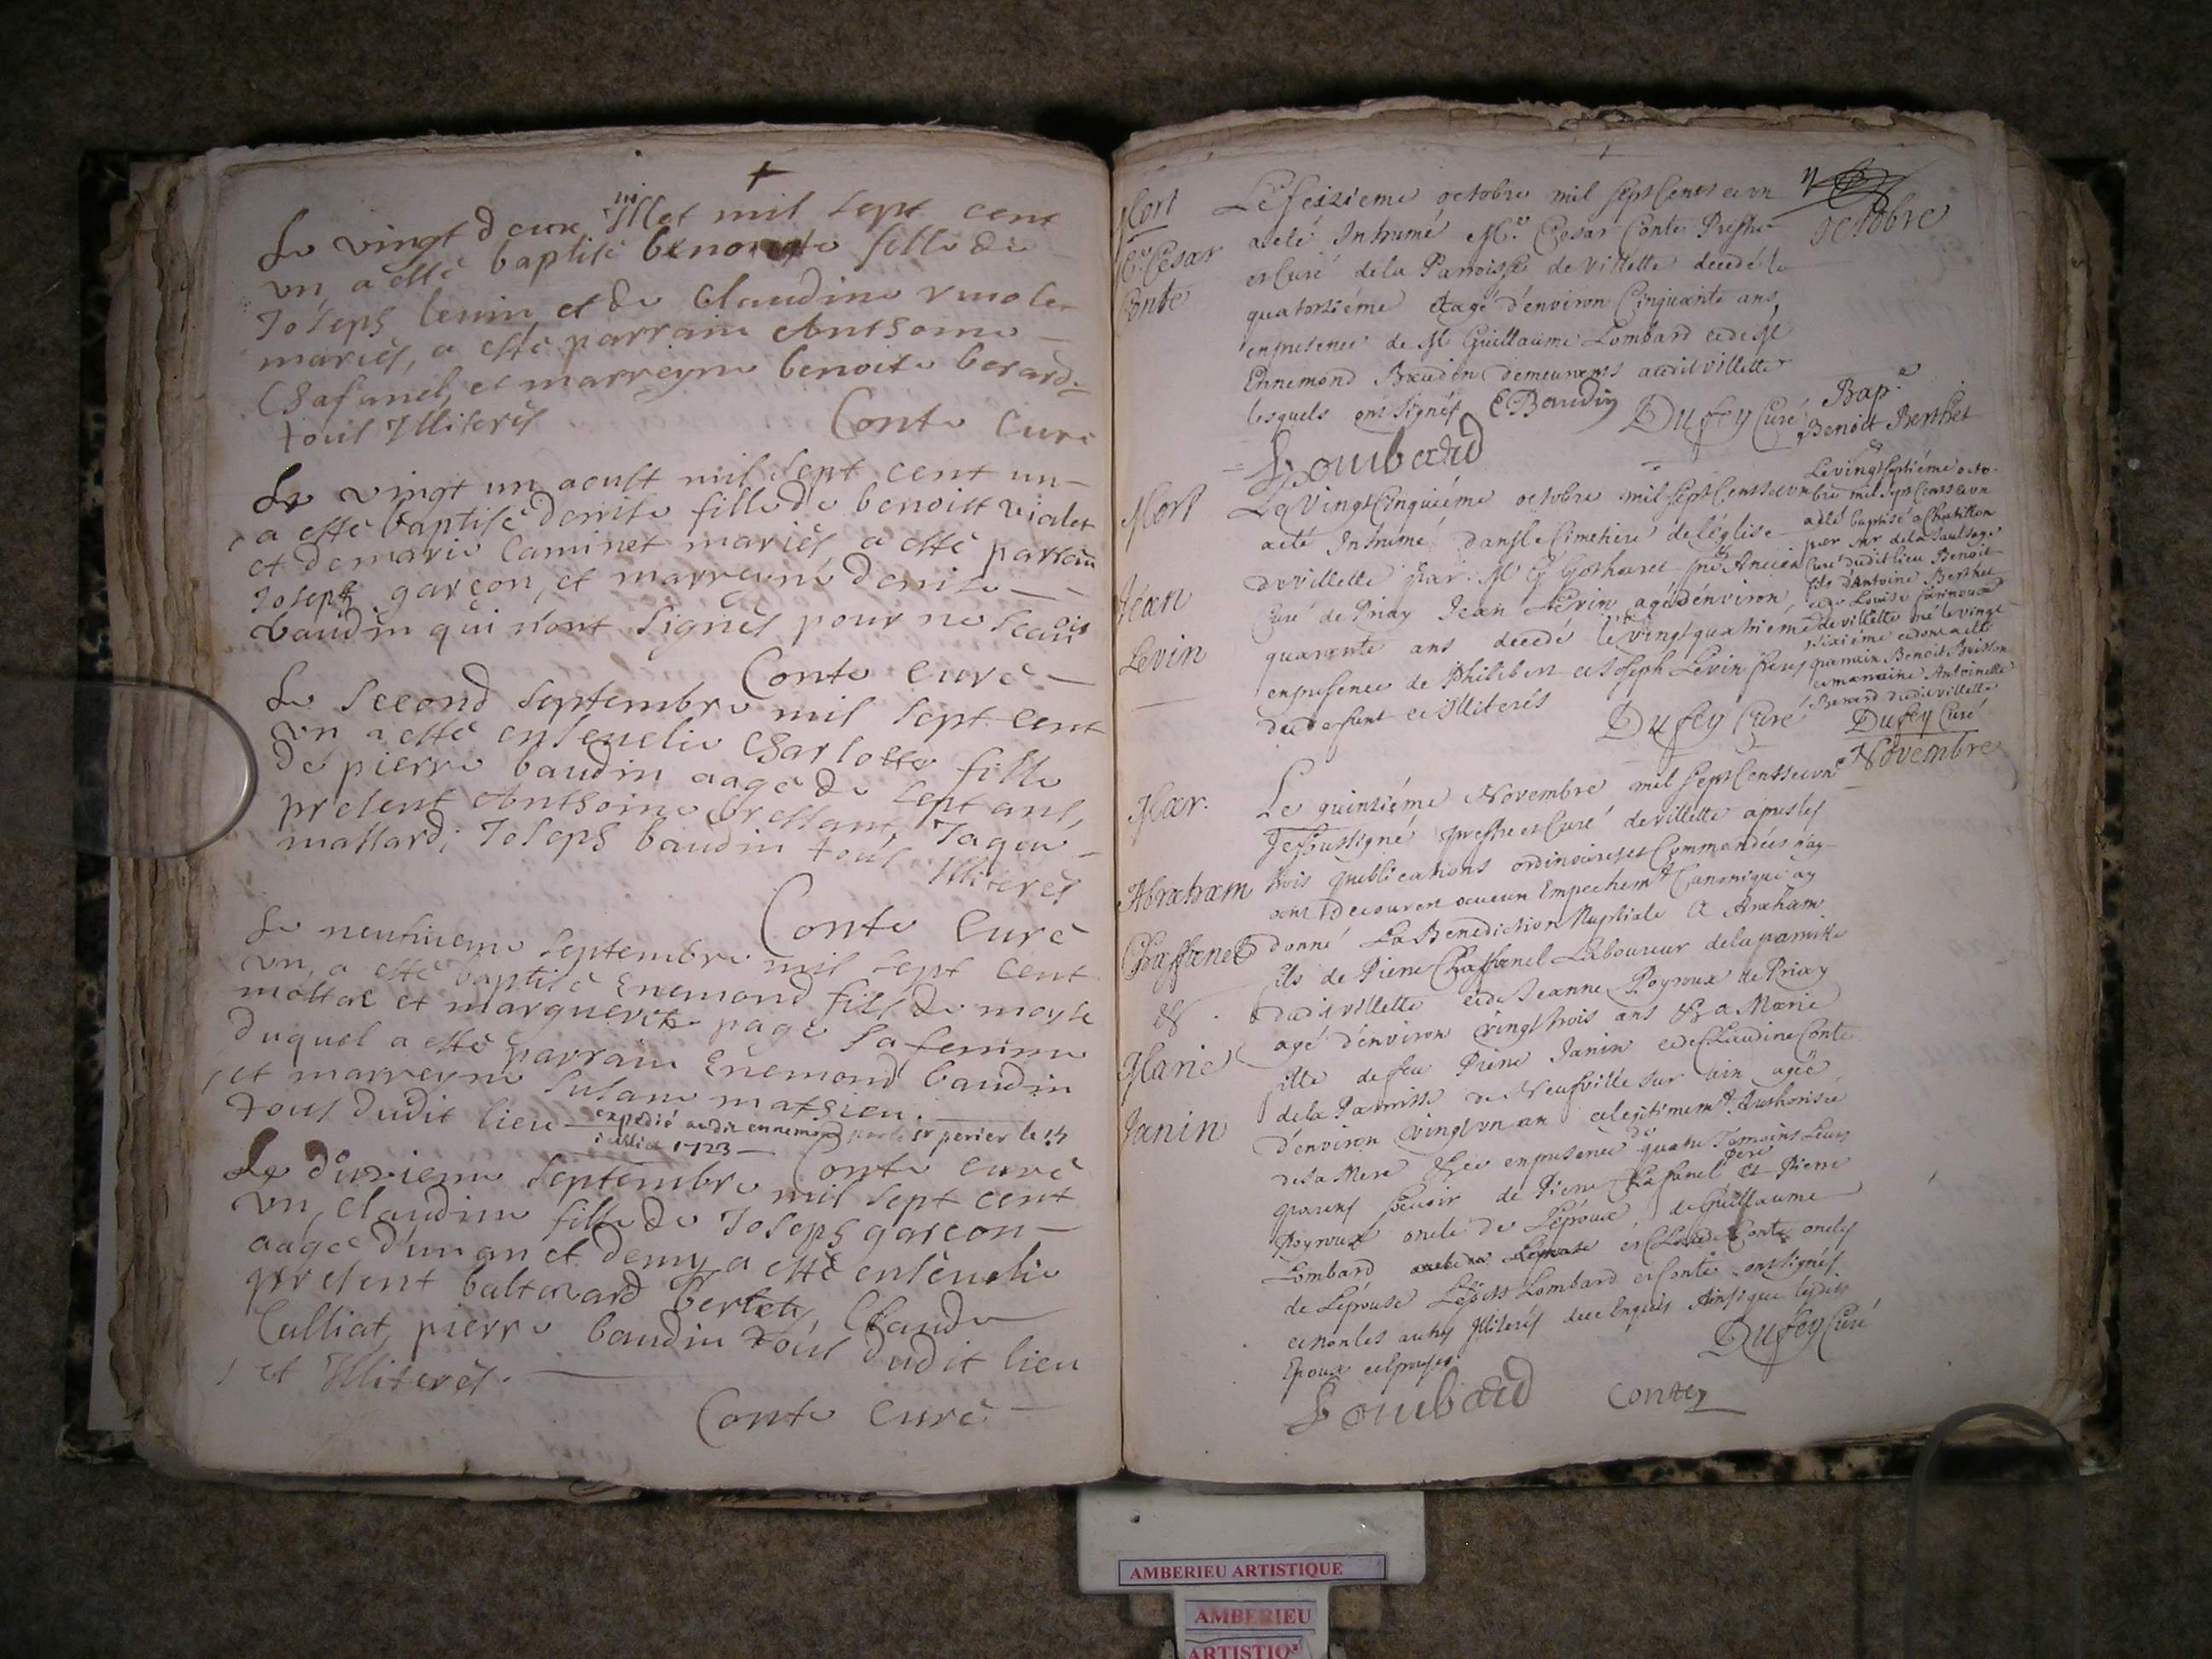 Le vingt deux Juillet mil sept cent
un, a esté baptisé benoiste fille de
Joseph levin, et de Claudine
mariés, a esté parrain Anthoine
Chafanel, et marreyne benoite berard
tous Illiterés
Conte Curé
Le vingt un aoust mil sept cent un
a esté baptisé denise fille de benoist violet
et de marie Caminet mariés, a esté parrain
Joseph garçon, et marreyne denise
baudin qui n'ont signés pour ne scavoir
Conte Curé
Le second septembre mil sept cent
un a esté ensevelie Charlotte fille
de pierre baudin aagé de sept ans,
present Anthoine bressant, Jaque
massard, Joseph baudin tous Illiterés
Conte Curé
Le neufvieme septembre mil sept cent
un, a esté baptisé Enemond fils de moyse
et marguerite page sa femme
duquel a esté parrain Enemond baudin
et marreyne Susane mathieu.
tous dudit lieu
expedié audit ennemond sr perier le 14
1723
Conte Curé
Le dixieme septembre mil sept cent
un, claudine fille de Joseph garçon
aagé d'un an et demy a esté ensevelie
present baltazard bertet, Claude
Culliat, pierre baudin tous dudit lieu
et Illiterés.
Conte Curé
octobre
Mort
Cesar
Conte
Le seizieme octobre mil sept Cents et un
a eté Inhumé Mre Cesar Conte Prestre
et Curé de la Parroisse de Villette decedé le
quatorziéme et agé d'environ Cinquante ans
en presence de Mr Guillaume Lombard et de Mr
Ennemond Baudin demeurants audit villette
lesquels ont signés E Baudin Dufey Curé
Lombard
Mort
Jean
Levin
Le Vingt Cinquiéme octobre mil sept Cents et un
a eté Inhumé dans le Cimetiere de l'église
de villette par Mr Ancien
Curé de Priay Jean Levin agé d'environ
quarente ans decedé le vingt quatrieme
en presence de Philibert et Joseph Levin freres
du defunt et Illiterés
Dufey Curé
Bap.e
Benoit Berthet
Le vingt septiéme octo-
bre mil sept Cents et un
a eté baptisé a Chatillon
par Mr de la Saulsaye
Curé dudit lieu Benoit
fils d'Antoine Berthet
et de Louise
de villette né le vingt
sixiéme et dont a eté
parrain Benoit Buisson
et marraine Antoinette
Berard dudit villette
Dufey Curé
Novembre
Mar.
Abraham
Chaffanel
&
Marie
Janin
Le quinziéme Novembre mil sept Cents et un
Je soussigné prestre et Curé de villette apres les
trois publications ordinaires et Commandées n'ay-
ant decouvert aucun Empechemt Canonique ay
donné La Benediction Nuptiale a Abraham
fils de Pierre Chaffanel Laboureur de la parroisse
dudit villette et de Jeanne Poyroux de Priay
agé d'environ vingt trois ans & a Marie
fille de feu Pierre Janin et de Claudine Conte
de la Parroisse de Neufville sur ain agée
d'environ vingt un an et legitimemt Authorisée
de sa Mere & ce en presence de quatre Temoins Leurs
parens scavoir de Pierre Chafanel Pere et Pierre
Poyroux oncle de L'époux, de Guillaume
Lombard et Claude Conte oncles
de L'épouse Lesdits Lombard et Conte ont signés
et non les autres Illiterés de ce Enquis Ainsi que lesdits
Epoux et Epouse.
Dufey Curé
Lombard Conte
AMBERIEU ARTISTIQUE
AMBERIEU
ARTISTIQ